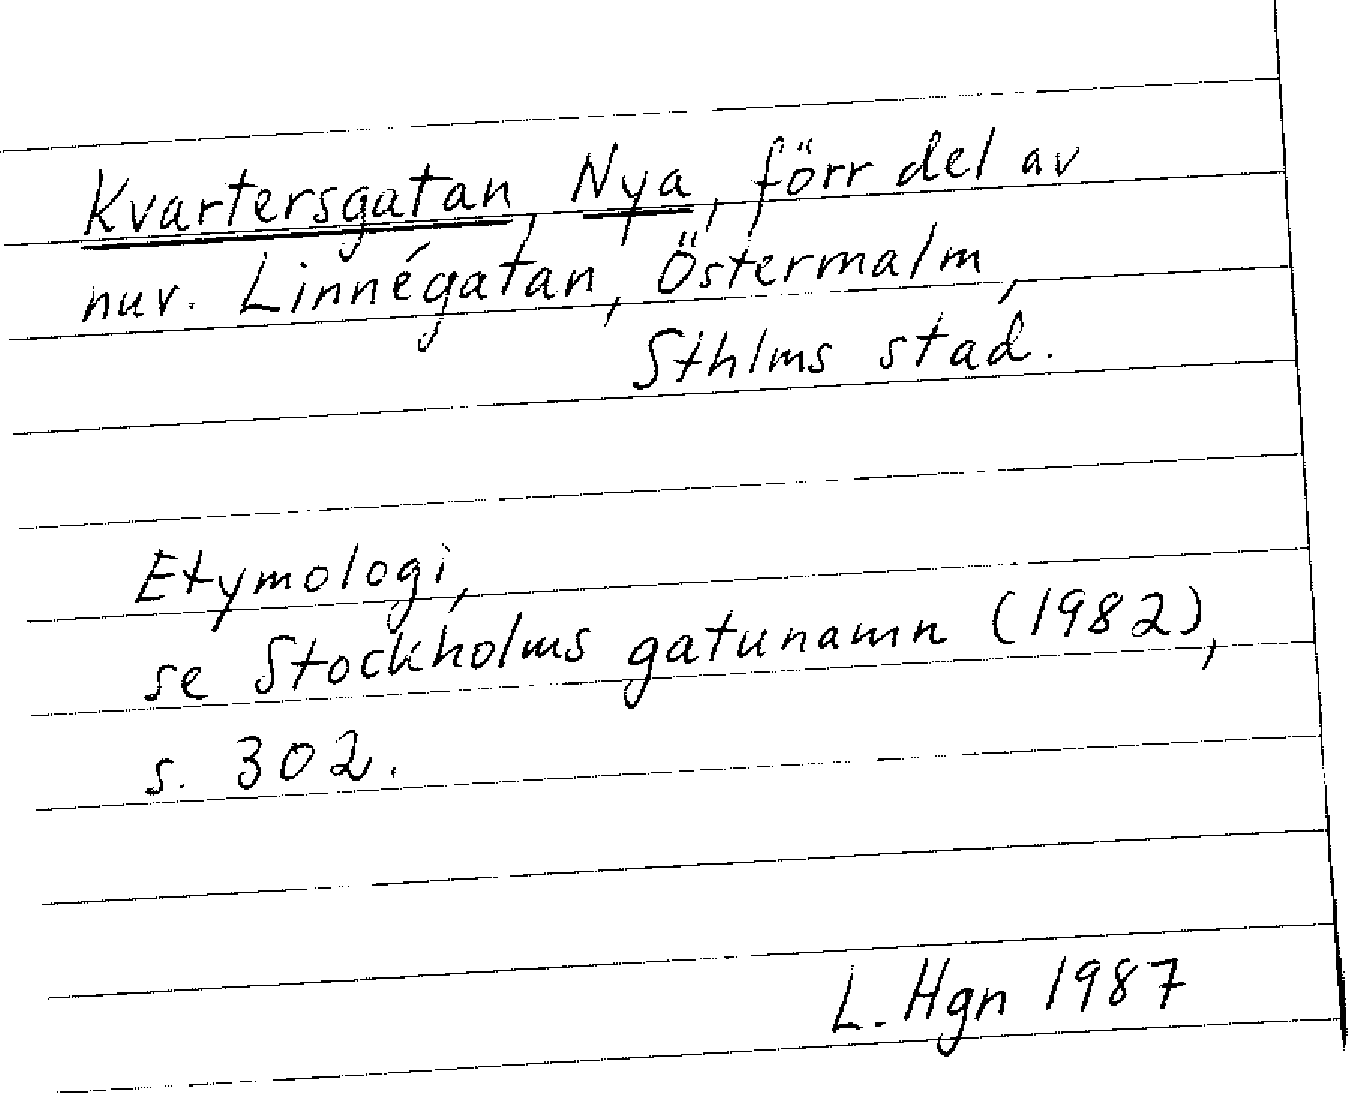 Kvartersgatan, Nya, förr del av
nuv. Linnégatan, Östermalm,
Sthlms stad.
Etymologi,
se Stockholms gatunamn (1982),
s. 302.
L. Hgn 1987